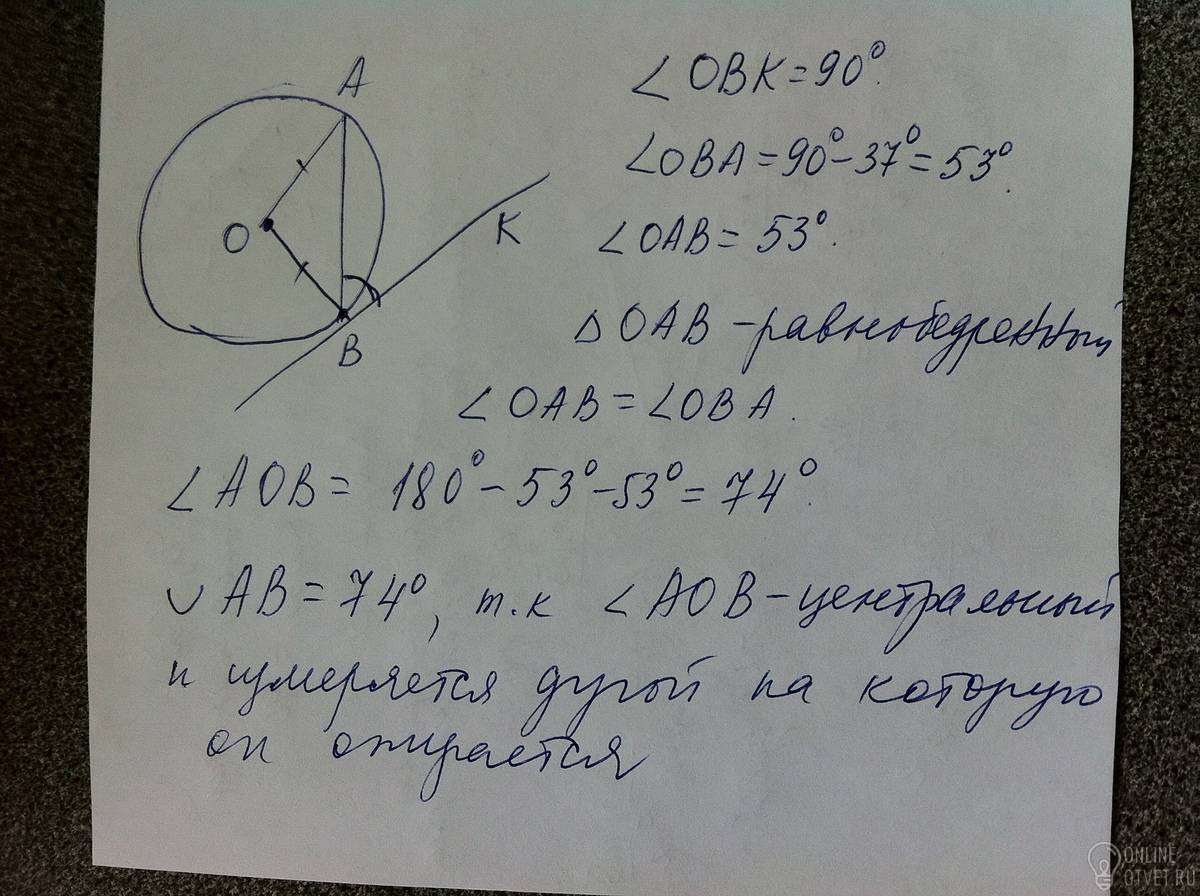 A
O
K
B
∠OBK=90°.
∠OBA=90°-37°=53°.
∠OAB=53°.
△OAB-равнобедренный
∠OAB=∠OBA.
∠AOB= 180°-53°-53°=74°.
◡AB=74°, т.к ∠AOB-центральный
и измеряется дугой на которую
он опирается
ONLINE
OTVET.RU